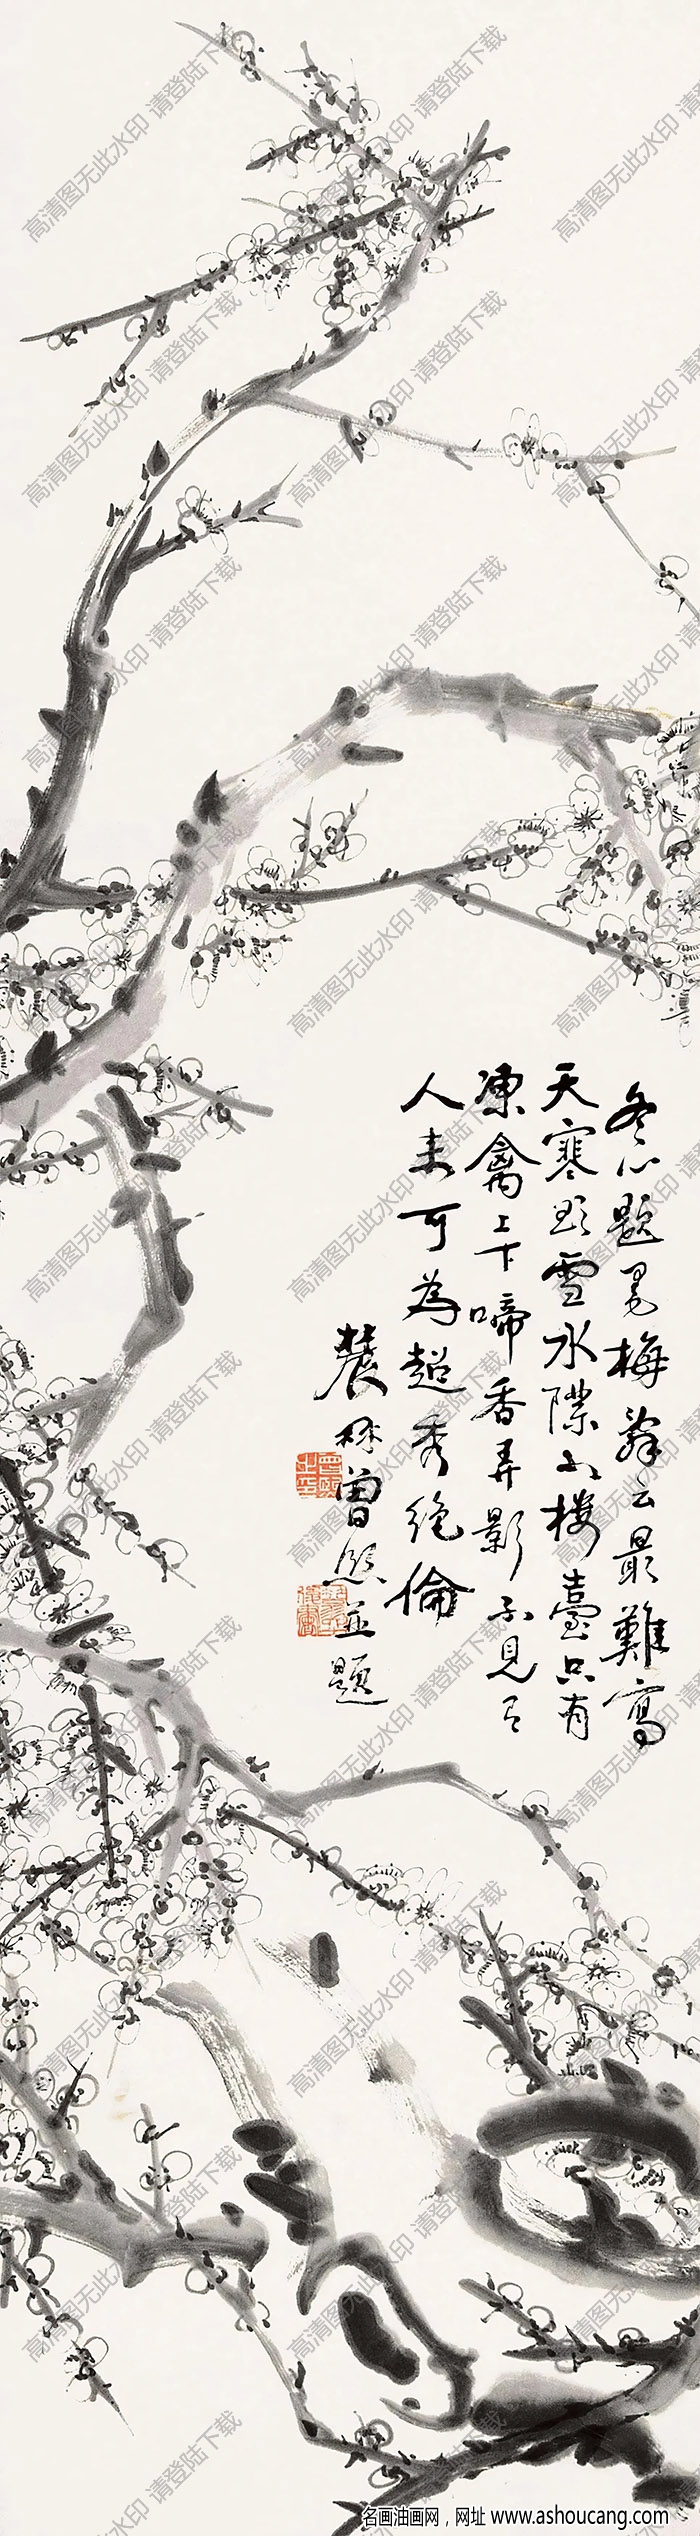 冬心題畫梅辭云最難寫
天寒欲雪水際小樓臺只有
凍禽上下啼香弄影不見有
人末可為超秀絕倫
農髯曾熙並題
高清图无此水印 请登陆下载
名画油画网，网址 www.ashoucang.com